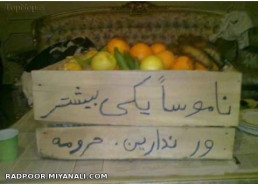 ناموساً یکی بیشتر
ور ندارین. حرومه
RADPOOR.MIYANALI.COM